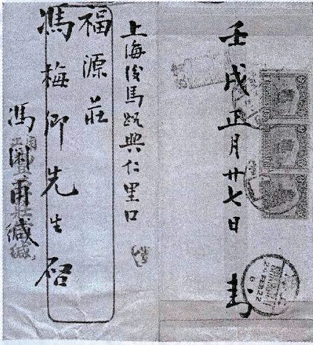 壬戌正月廿七日 封
上海後馬路興仁里口
福源莊
馮梅卿先生啓
馮閏甫緘